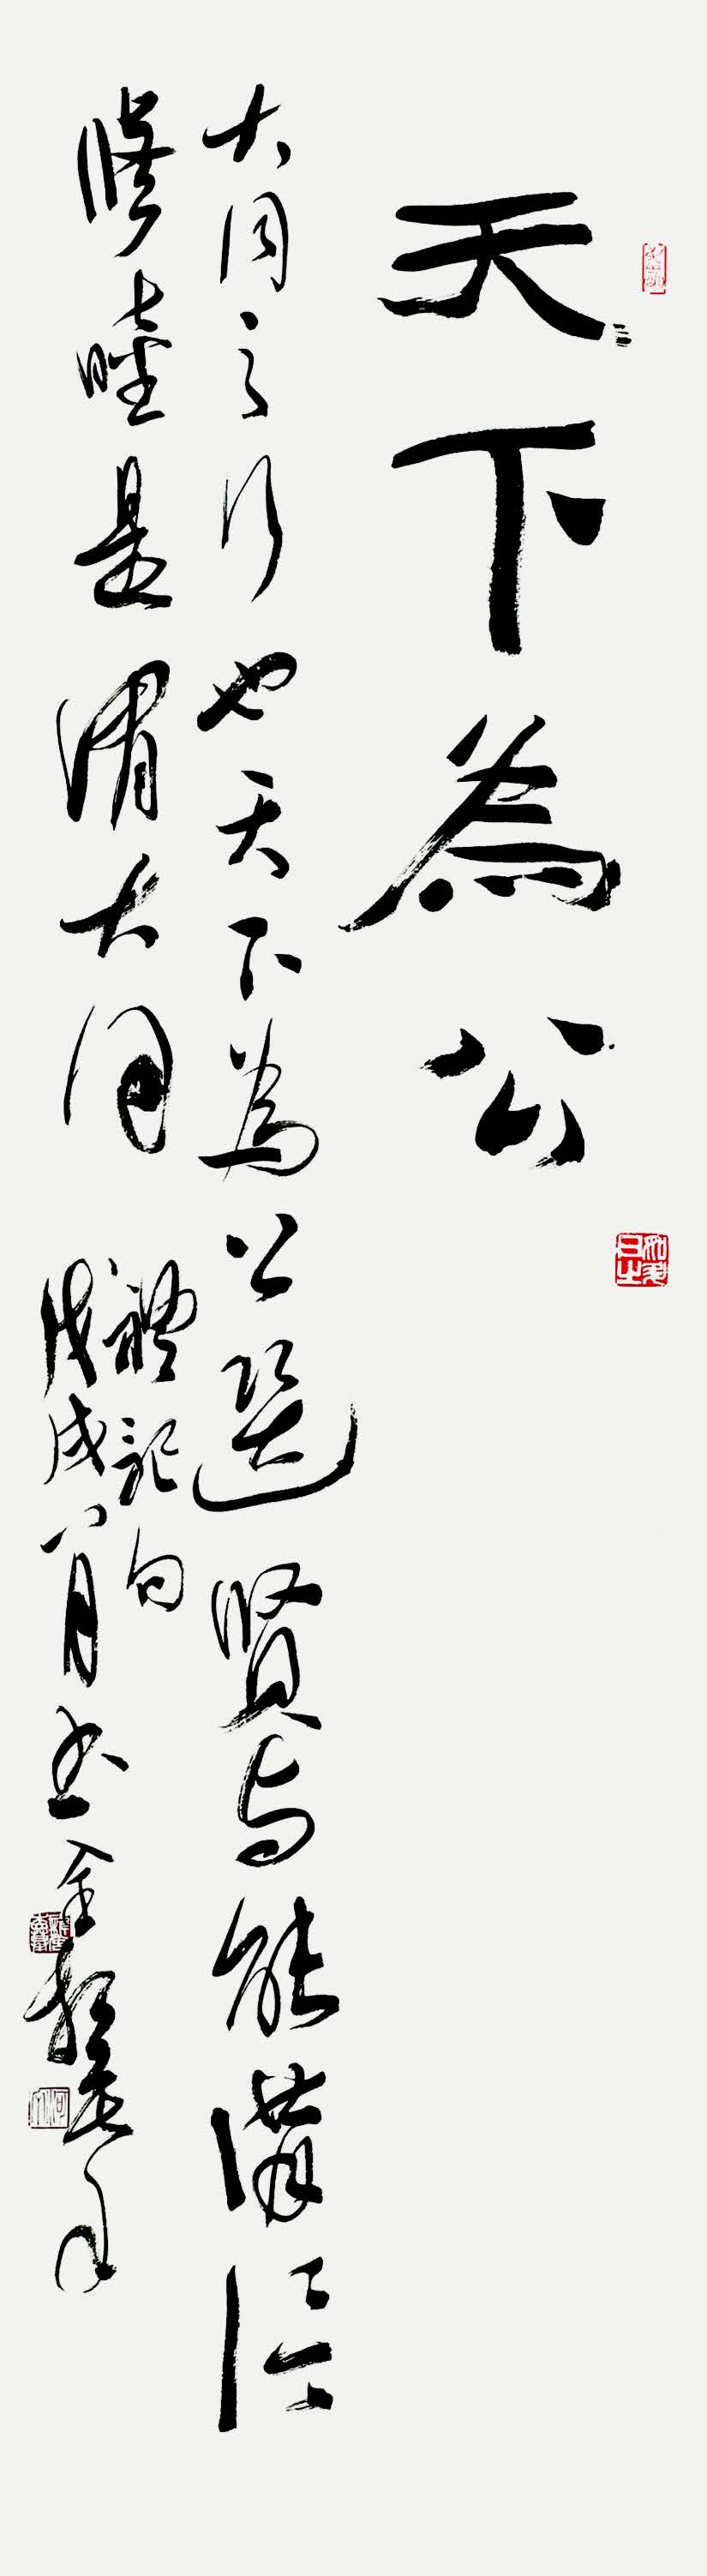 天下為公
大同之行也天下為公選賢与能講信
修睦是謂大同
禮記句
戊戌八月書